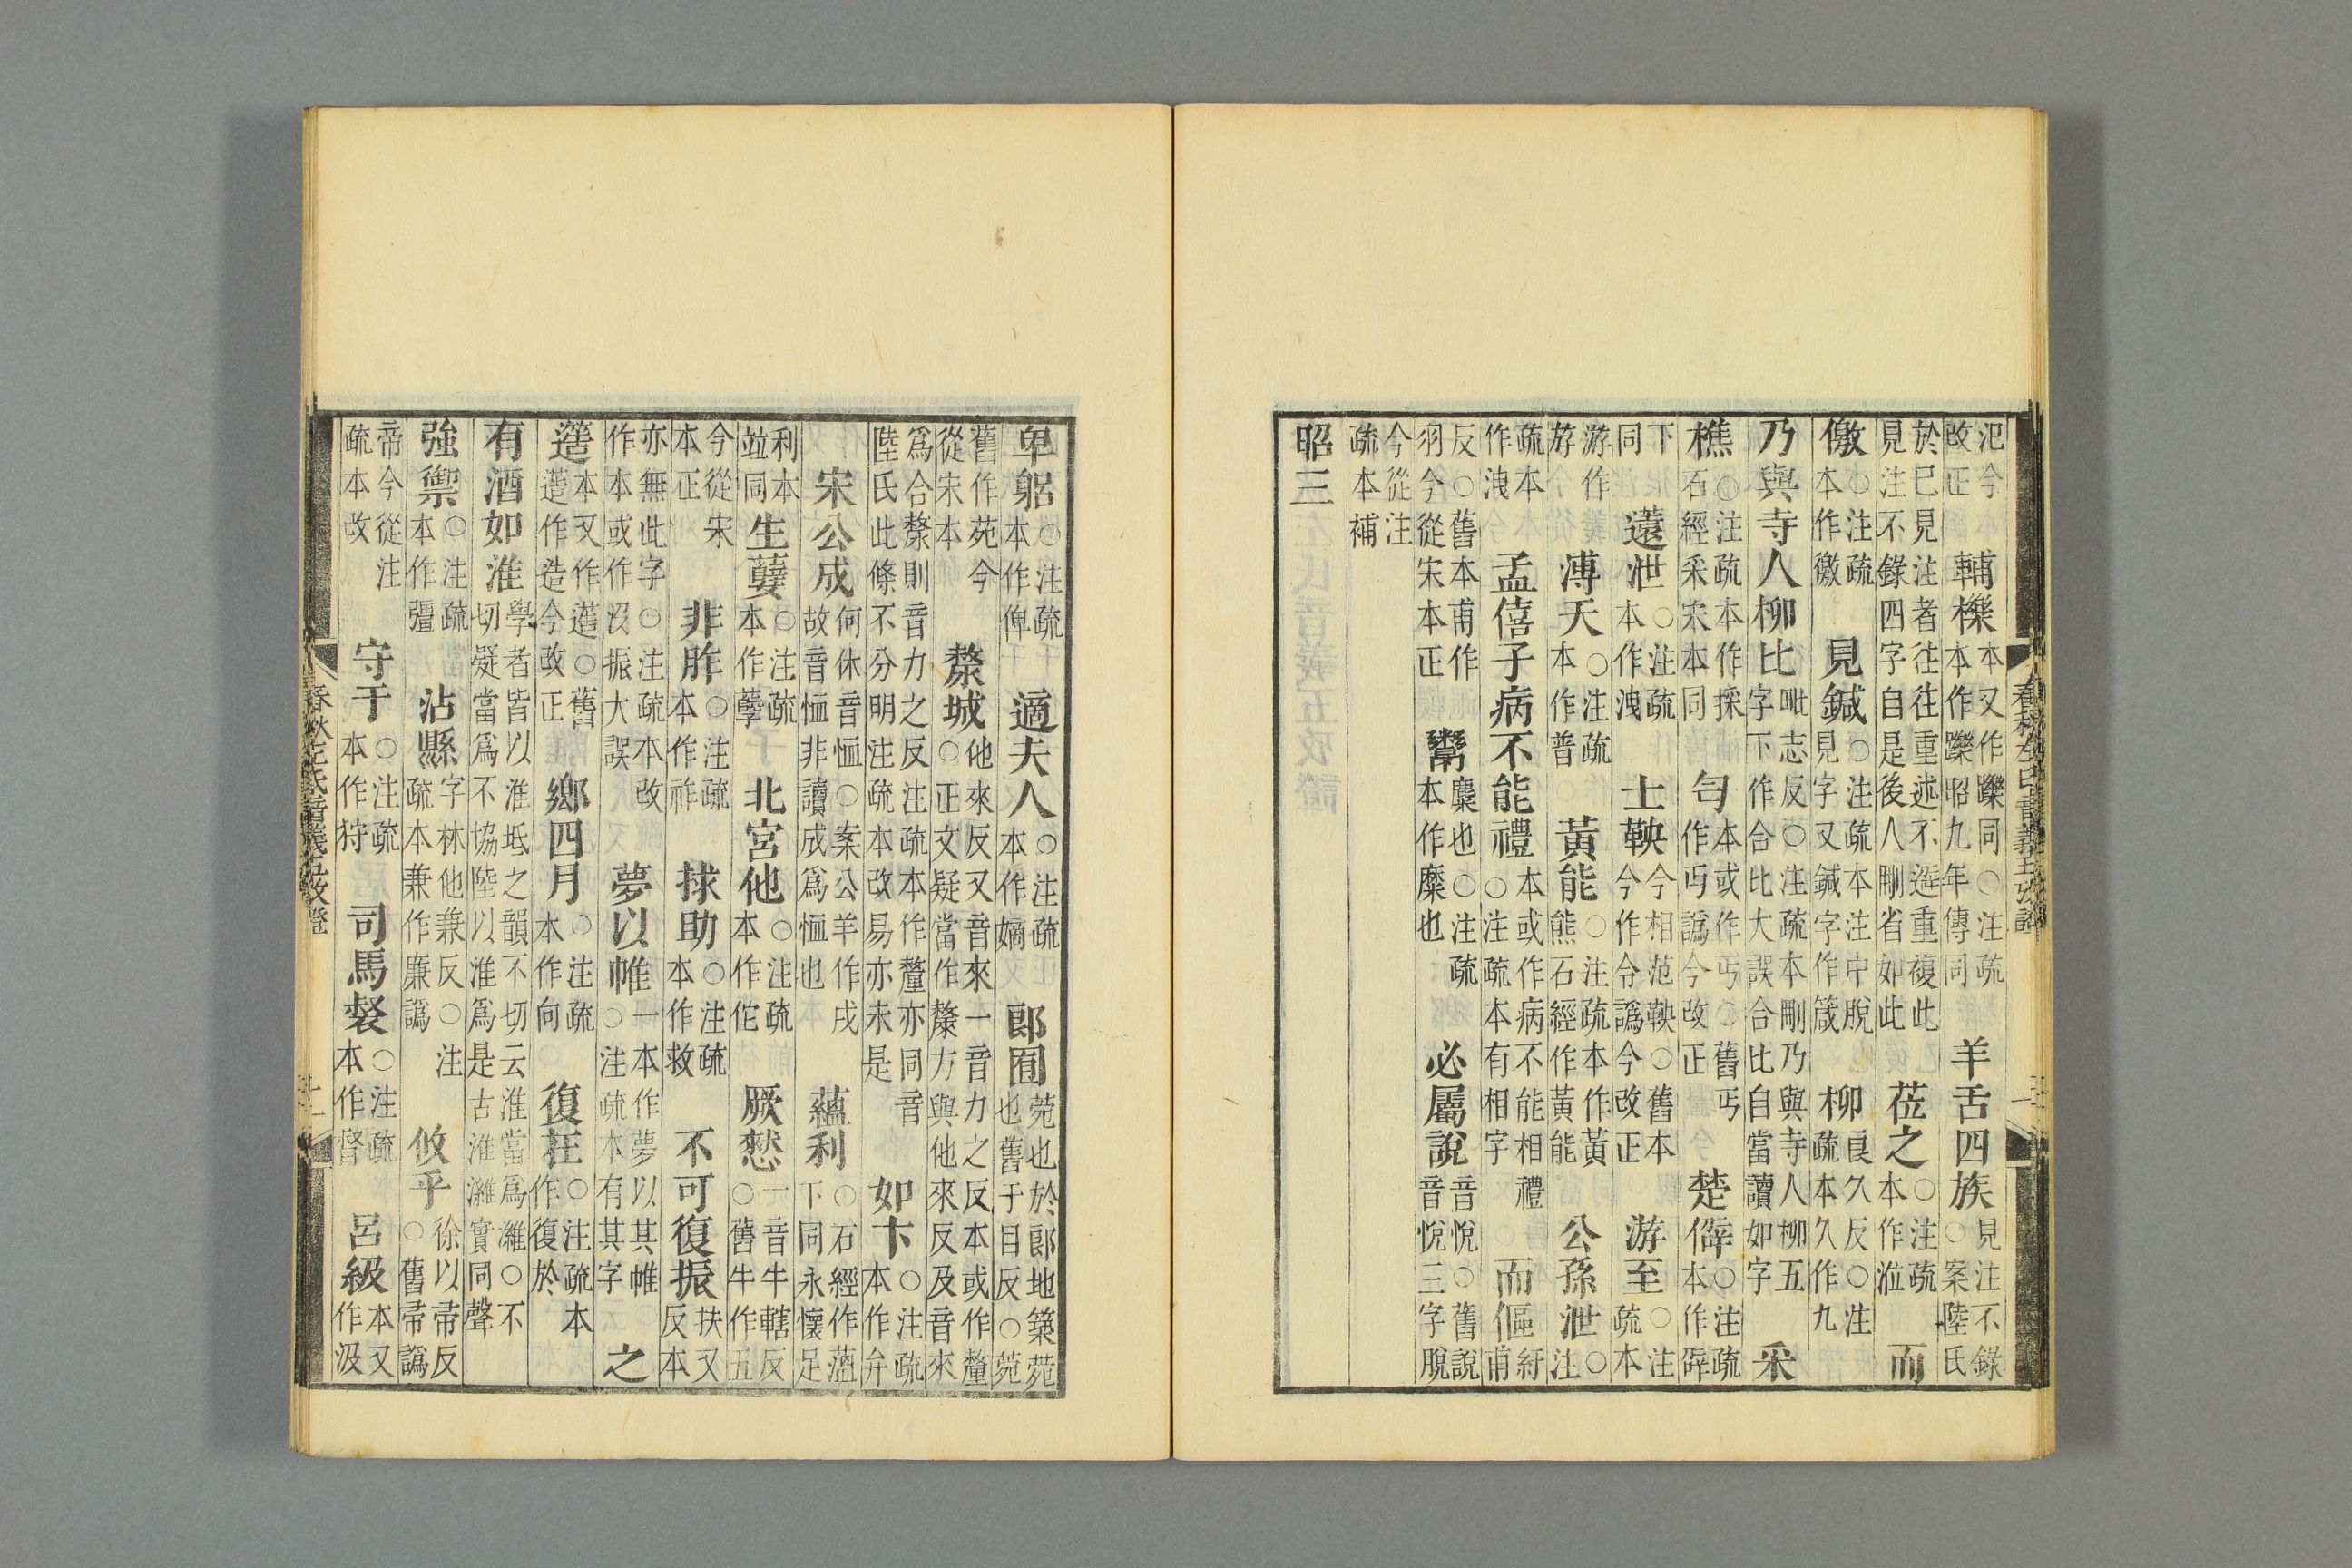 汜今改正 輔櫟本又作躒同○注疏本作躒昭九年傳同 羊舌四族見注不錄○案陸氏
於已見注者往往重述不避重複此見注不錄四字自是後人刪省如此 莅之○注疏本作涖 而
儌○注疏本作徼 見鍼○注疏本注中脫見字又鍼字作箴 柳良久反○注疏本久作九
乃與寺人柳比毗志反○注疏本刪乃與寺人柳五字下作合比大誤合比自當讀如字 采
樵○注疏本作採石經采宋本同 匄本或作丐○舊丐作丏譌今改正 楚僻○注疏本作辟
下同 薳泄○注疏本作洩 士鞅今相范鞅○舊本今作令譌今改正 游至○注疏本
游作斿 溥天○注疏本作普 黃能○注疏本作黃熊石經作黃能 公孫泄○注
疏本作洩 孟僖子病不能禮本或作病不能相禮○注疏本有相字 而傴紆甫
反○舊本甫作羽今從宋本正 鬻麋也○注疏本作糜也 必屬說音悅○舊說音悅三字脫
今從注疏本補
昭三
春秋左氏音義五攷證
卑躬○注疏本作俾 適夫人○注疏本作嫡 郎囿苑也於郎地築苑也舊于目反○苑
舊作苑今從宋本 斄城他來反又音來一音力之反本或作釐○正文疑當作斄方與他來反及音來
爲合斄則音力之反注疏本作釐亦同音陸氏此條不分明注疏本改易亦未是 如卞○注疏本作弁
宋公成何休音恤○案公羊作戌故音恤非讀成爲恤也 蘊利○石經作薀下同永懷足
利本竝同 生孽○注疏本作孼 北宮他○注疏本作佗 厥憖一音牛轄反○舊牛作五
今從宋本正 非胙○注疏本作祚 捄助○注疏本作救 不可復振扶又反本
亦無此字○注疏本改作本或作沒振大誤 夢以帷一本作夢以其帷○注疏本有其字 之
簉本又作䔏○舊簉作造今改正 鄉四月○注疏本作向 復在○注疏本作復於
有酒如淮學者皆以淮坻之韻不切云淮當爲濰○不切疑當爲不協陸以淮爲是古淮濰實同聲
強禦○注疏本作彊 沾縣字林他兼反○注疏本兼作廉譌 攸乎徐以帚反○舊帚譌
帝今從注疏本改 守于○注疏本作狩 司馬○注疏本作督 呂級本又作汲
春秋左氏音義五攷證